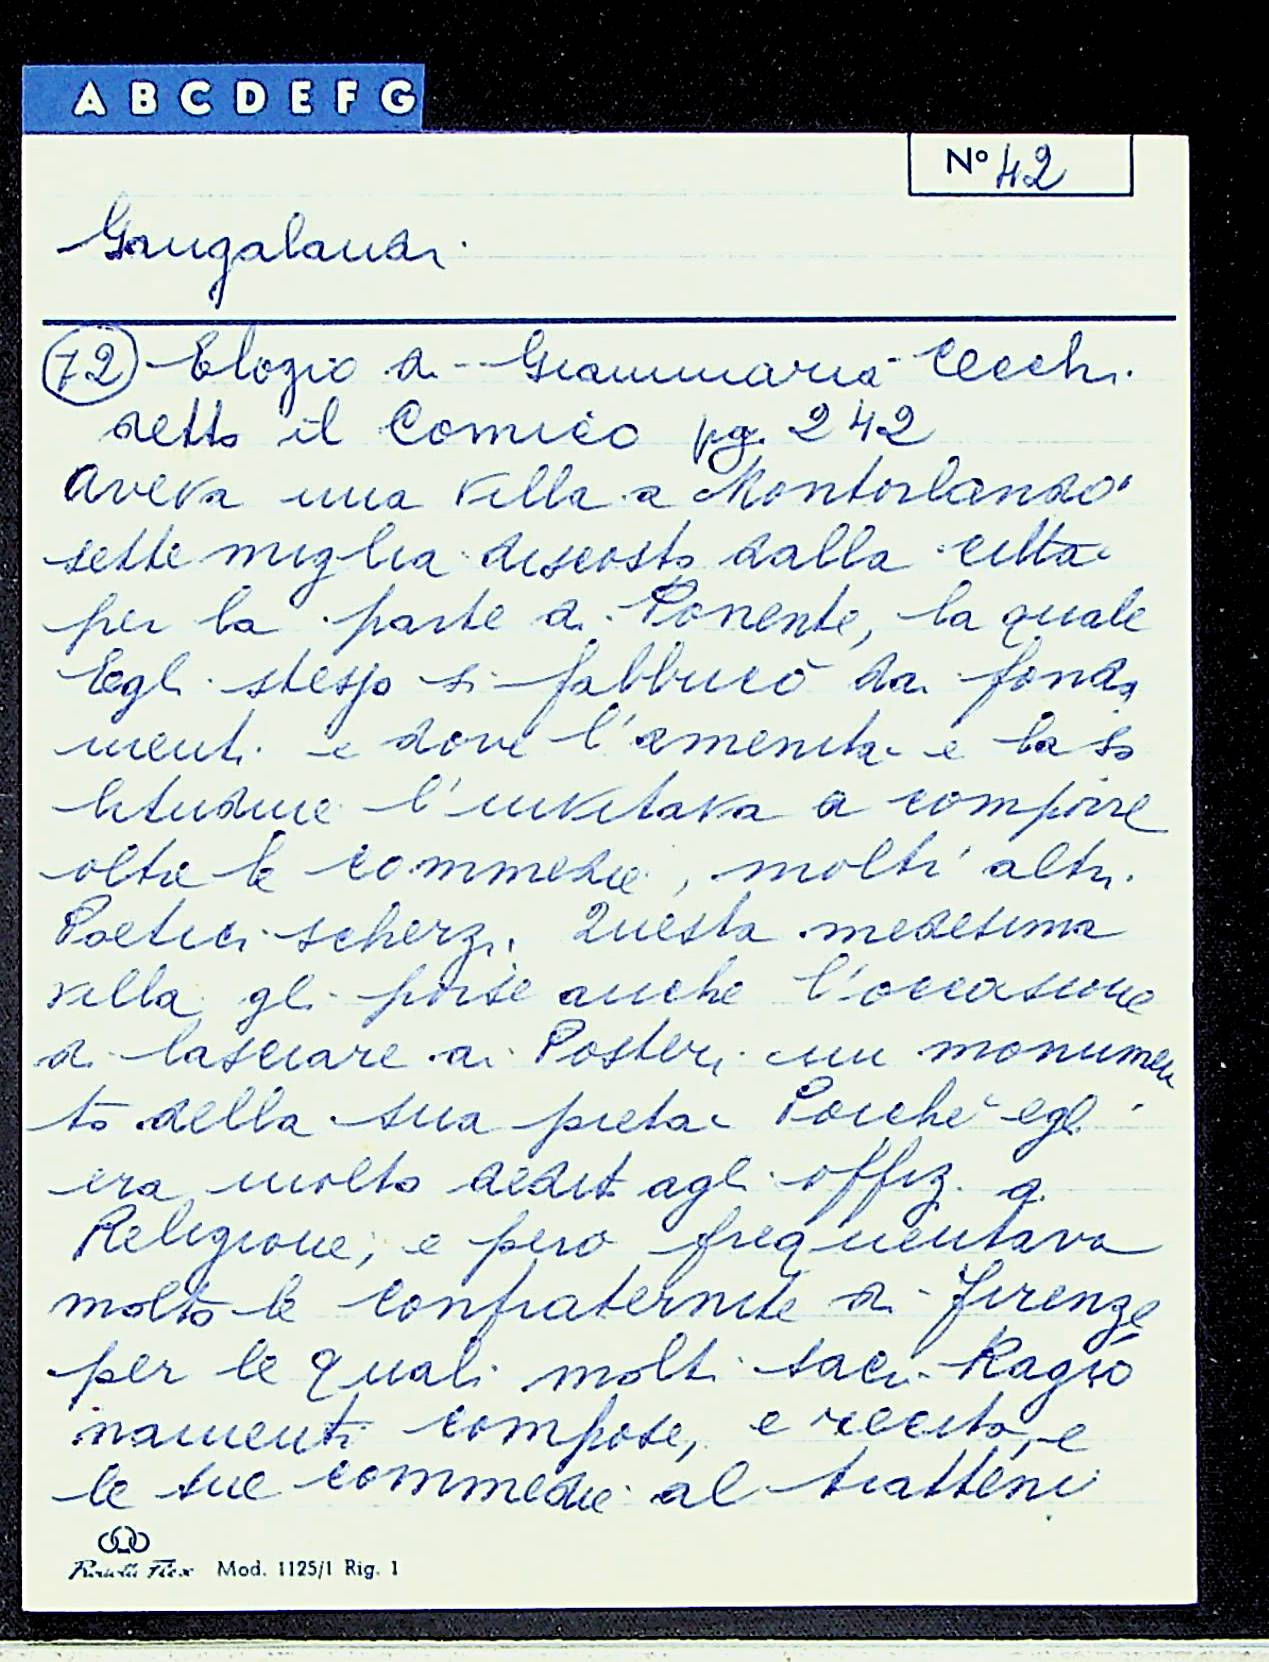 A B C D E F G
Nº 42
Gangalandi.
72 Elogio di Giammaria Cecchi
detto il Comico pg. 242
Aveva una villa a Montorlando
sette miglia discosto dalla città
per la parte di Ponente, la quale
Egli stesso si fabbricò dai fonda
menti e dove l'amenità e la so
litudine l'invitava a comporre
oltre le commedie, molti altri
Poetici scherzi. Questa medesima
villa gli porse anche l'occasione
di lasciare ai Posteri un monumen
to della sua pietà Poiché egli
era molto dedit agli offizi di
Religione, e però frequentava
molto le confraternite di Firenze
per le quali molti sacri Ragio
namenti compose, e recitò, e
le sue commedie al tratteni
Mod. 1125/1 Rig. 1